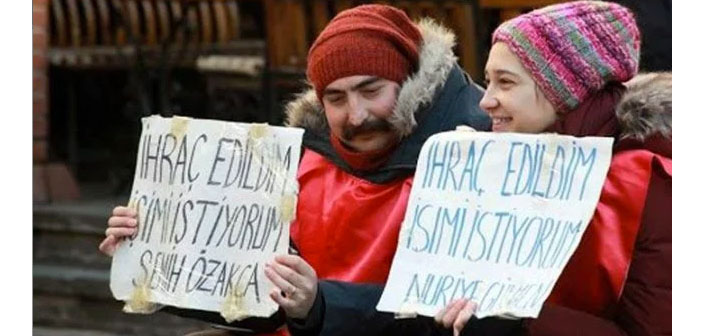 İHRAÇ EDİLDİM
İŞİMİ İSTİYORUM
SEMİH ÖZAKÇA
İHRAÇ EDİLDİM
İŞİMİ İSTİYORUM
NURİYE GÜLMEN